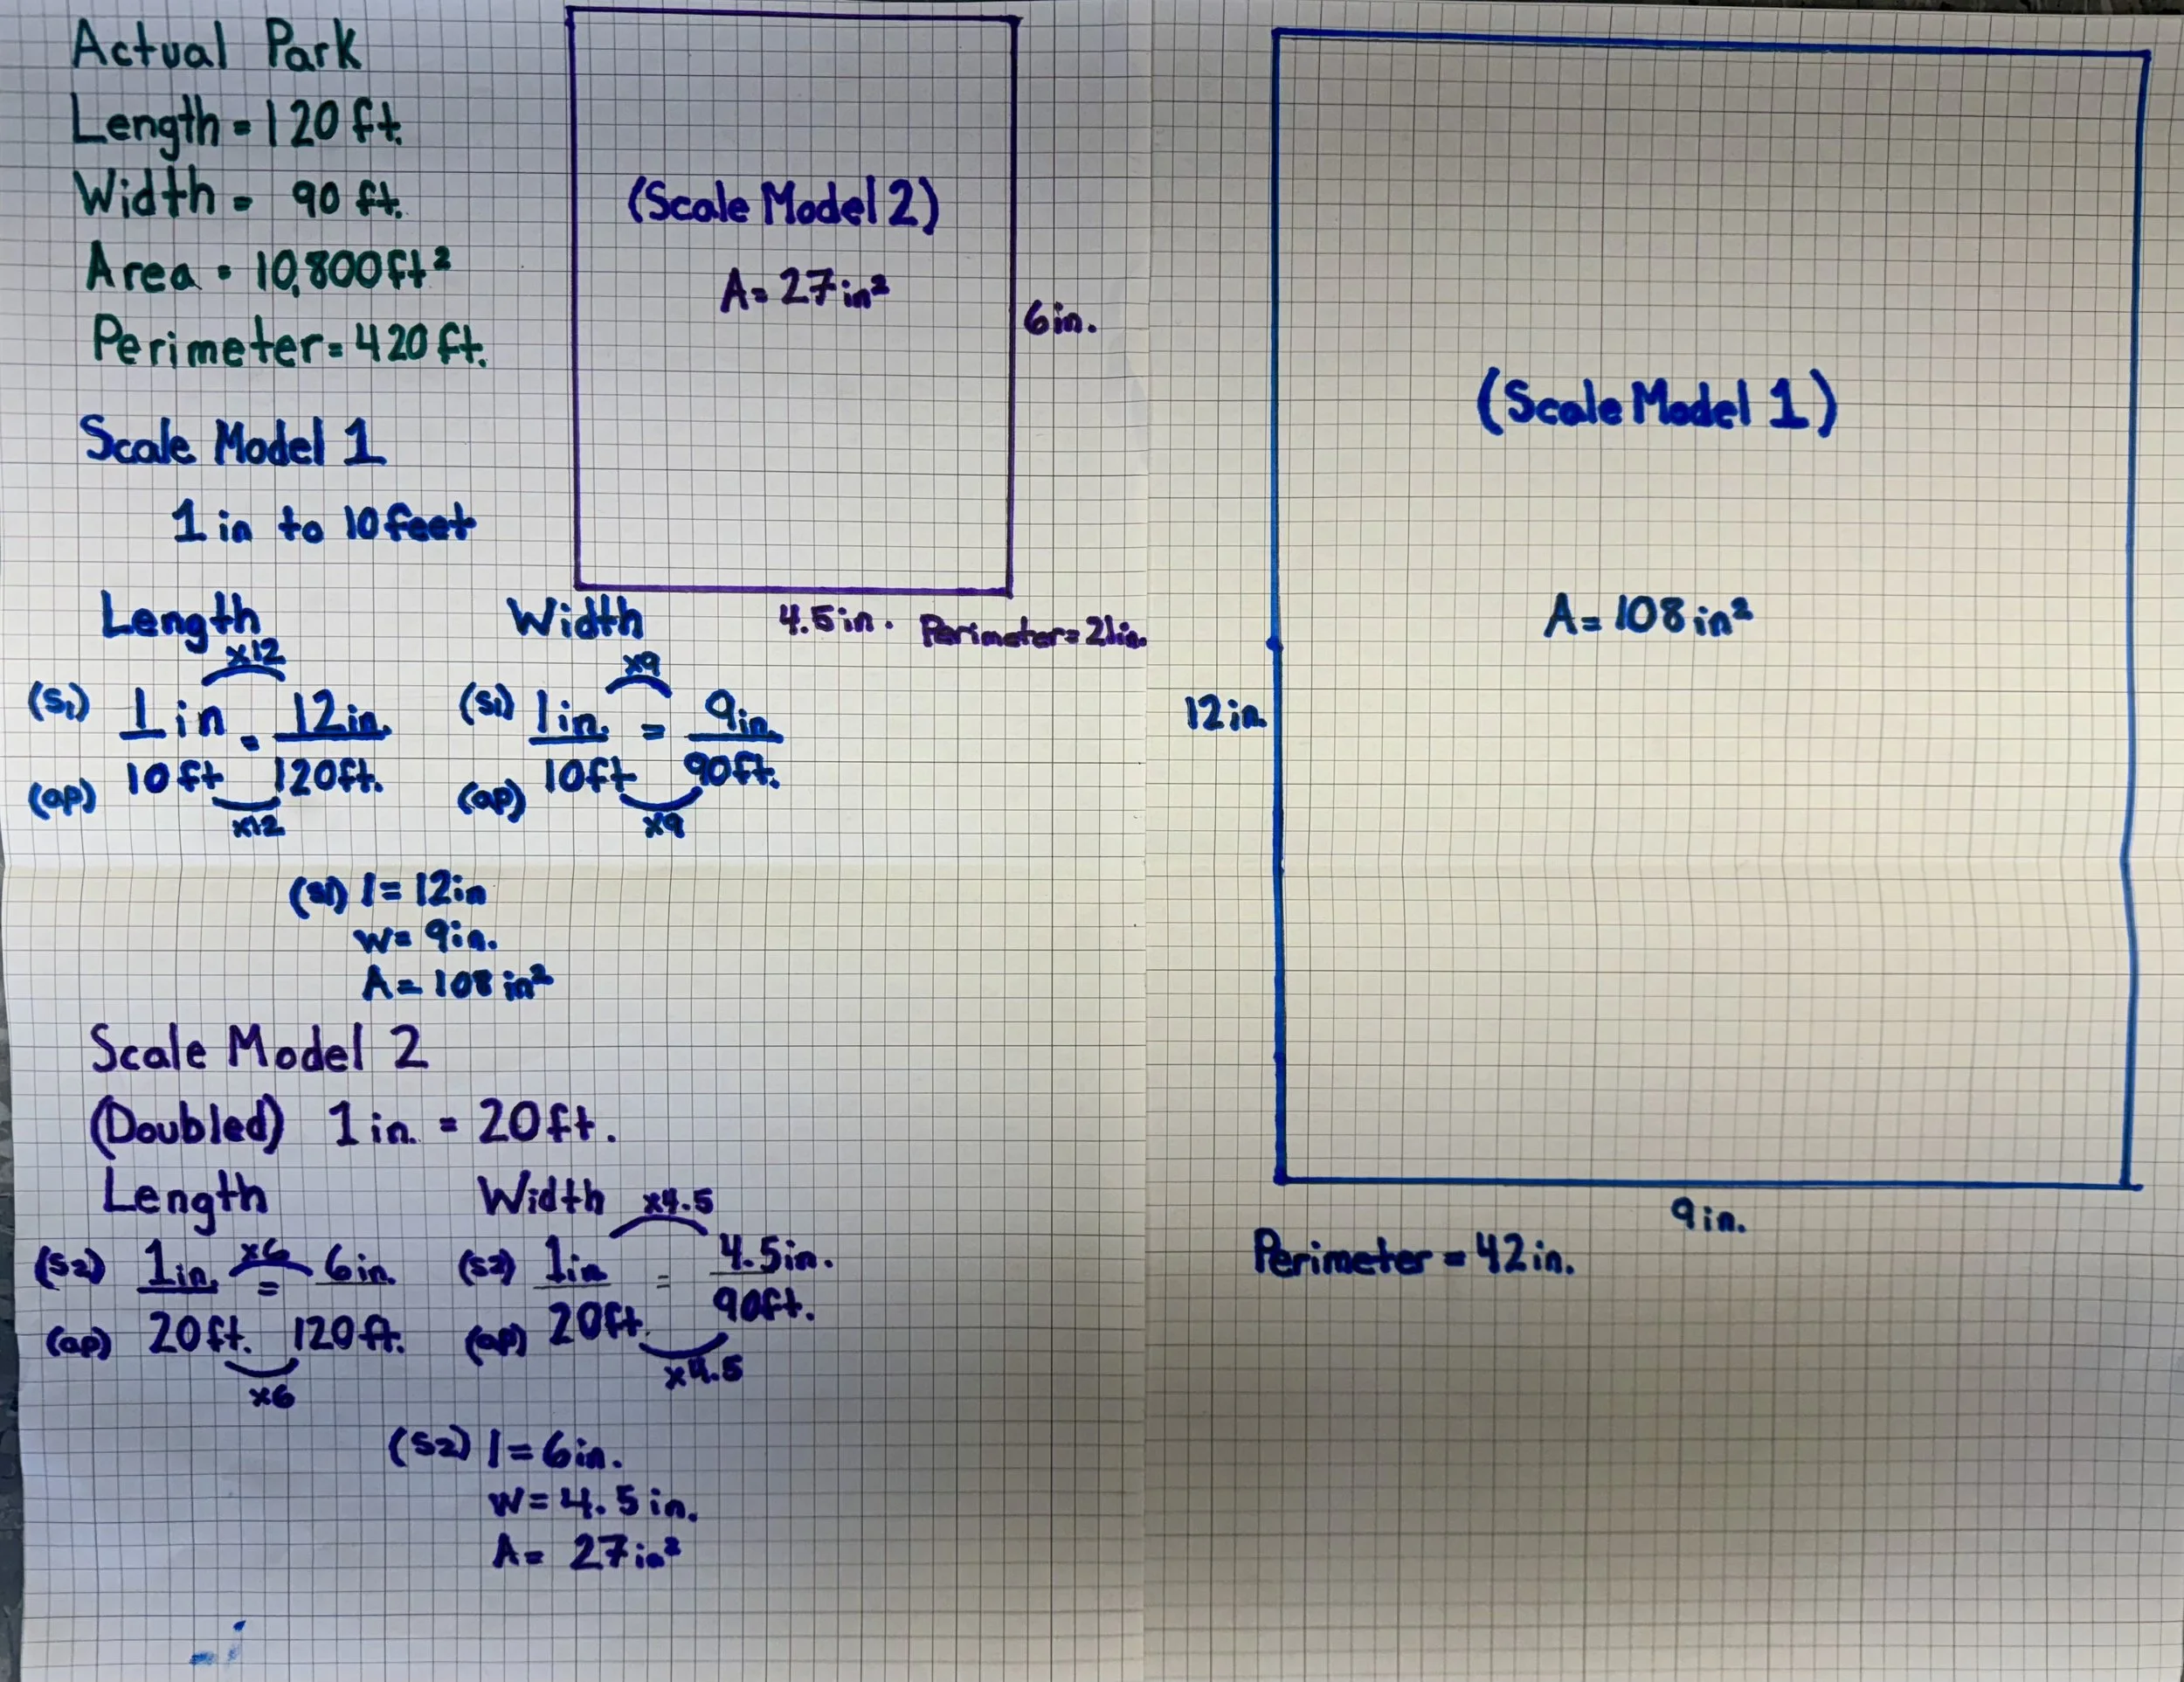 Actual Park
Length = 120 ft.
Width = 90 ft.
Area = 10,800 ft²
Perimeter = 420 ft.
Scale Model 1
1 in to 10 feet
Length
x12
(S₁) 1 in = 12 in.
(ap) 10 ft 120 ft.
x12
Width
x9
(S1) 1 in. = 9 in.
(ap) 10 ft 90 ft.
x9
(S1) l = 12 in
w = 9 in.
A = 108 in²
Scale Model 2
(Doubled) 1 in. = 20 ft.
Length
x6
(S2) 1 in. = 6 in.
(ap) 20 ft. 120 ft.
x6
Width
x4.5
(S2) 1 in = 4.5 in.
(ap) 20 ft. 90 ft.
x4.5
(S2) l = 6 in.
w = 4.5 in.
A = 27 in²
(Scale Model 2)
A = 27 in²
6 in.
4.5 in.
Perimeter = 21 in.
(Scale Model 1)
A = 108 in²
12 in
9 in.
Perimeter = 42 in.